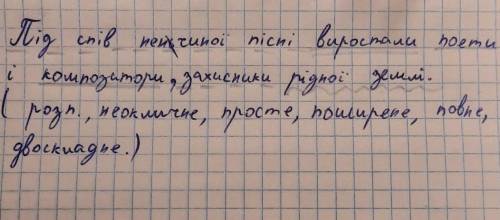 Під спів пенчиної пісні виростали поети
і композитори, захисники рідної землі.
( розп., неокличне, просте, поширене, повне,
двоскладне.)